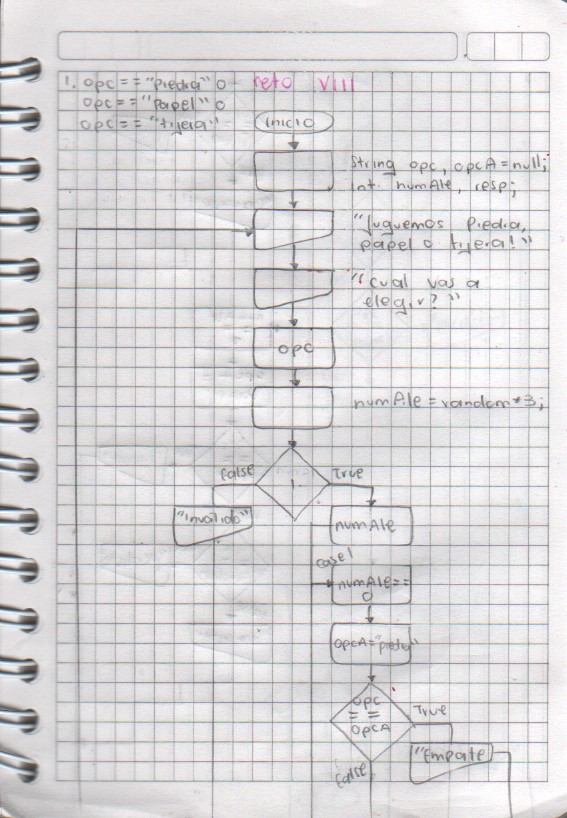 1. opc == "piedra" o reto VIII
opc == "papel" o
opc == "tijera"
inicio
String opc, opcA = null;
int numAle, resp;
"Juguemos Piedra,
papel o tijera!"
"cual vas a
elegir?"
opc
numAle = random * 3;
false
True
1.
"Invalido"
numAle
case 1
numAle ==
0
opcA = "piedra"
opc
==
opcA
True
"Empate
false